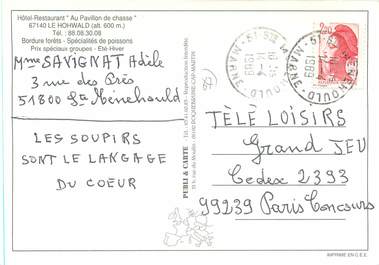 Hôtel-Restaurant " Au Pavillon de chasse "
67140 LE HOHWALD (alt. 600 m.)
Tél. : 88.08.30.08
Bordure forêts - Spécialités de poissons
Prix spéciaux groupes - Eté-Hiver
Mme SAVIGNAT Adèle
3 rue des Prés
51800 Ste Ménehould
LES SOUPIRS
SONT LE LANGAGE
DU COEUR
PUBLI & CARTE
2,20
TÉLÉ LOISIRS
Grand JEU
Cedex 2393
99239 Paris Concours
IMPRIMÉ EN C.E.E.